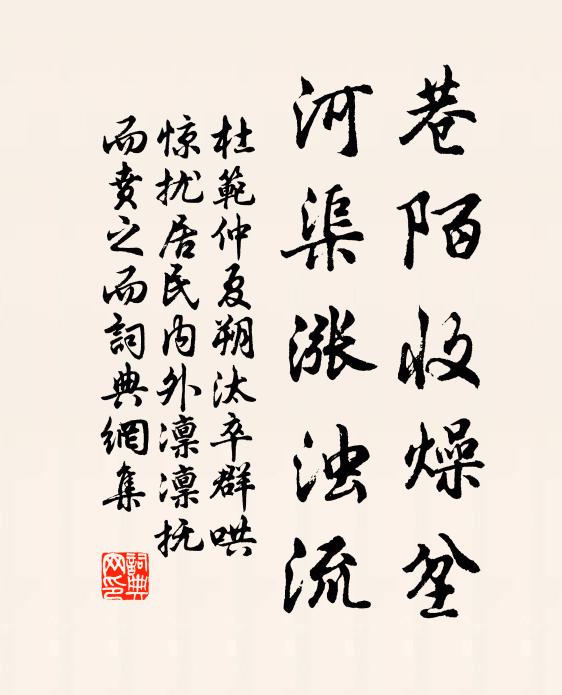 巷陌收燥坌
河渠涨浊流
杜範仲夏朔汰卒群哄
惊扰居民内外凛凛抚
而赉之而詞典網集
詞典网印